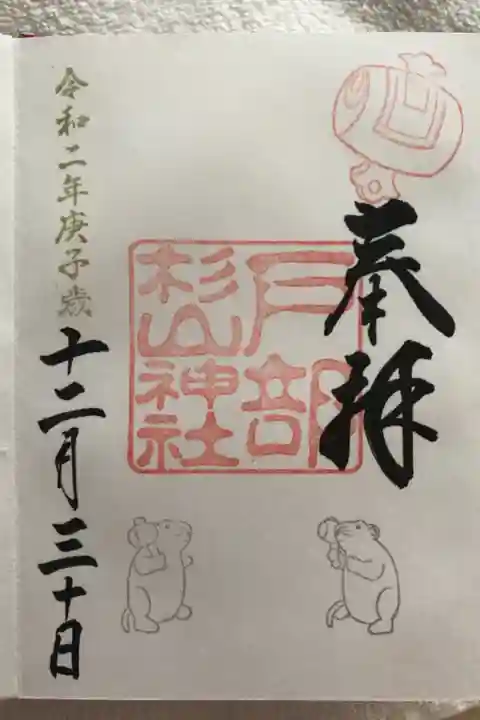 奉拝
戸部
杉山神社
令和二年庚子歳
十二月三十日